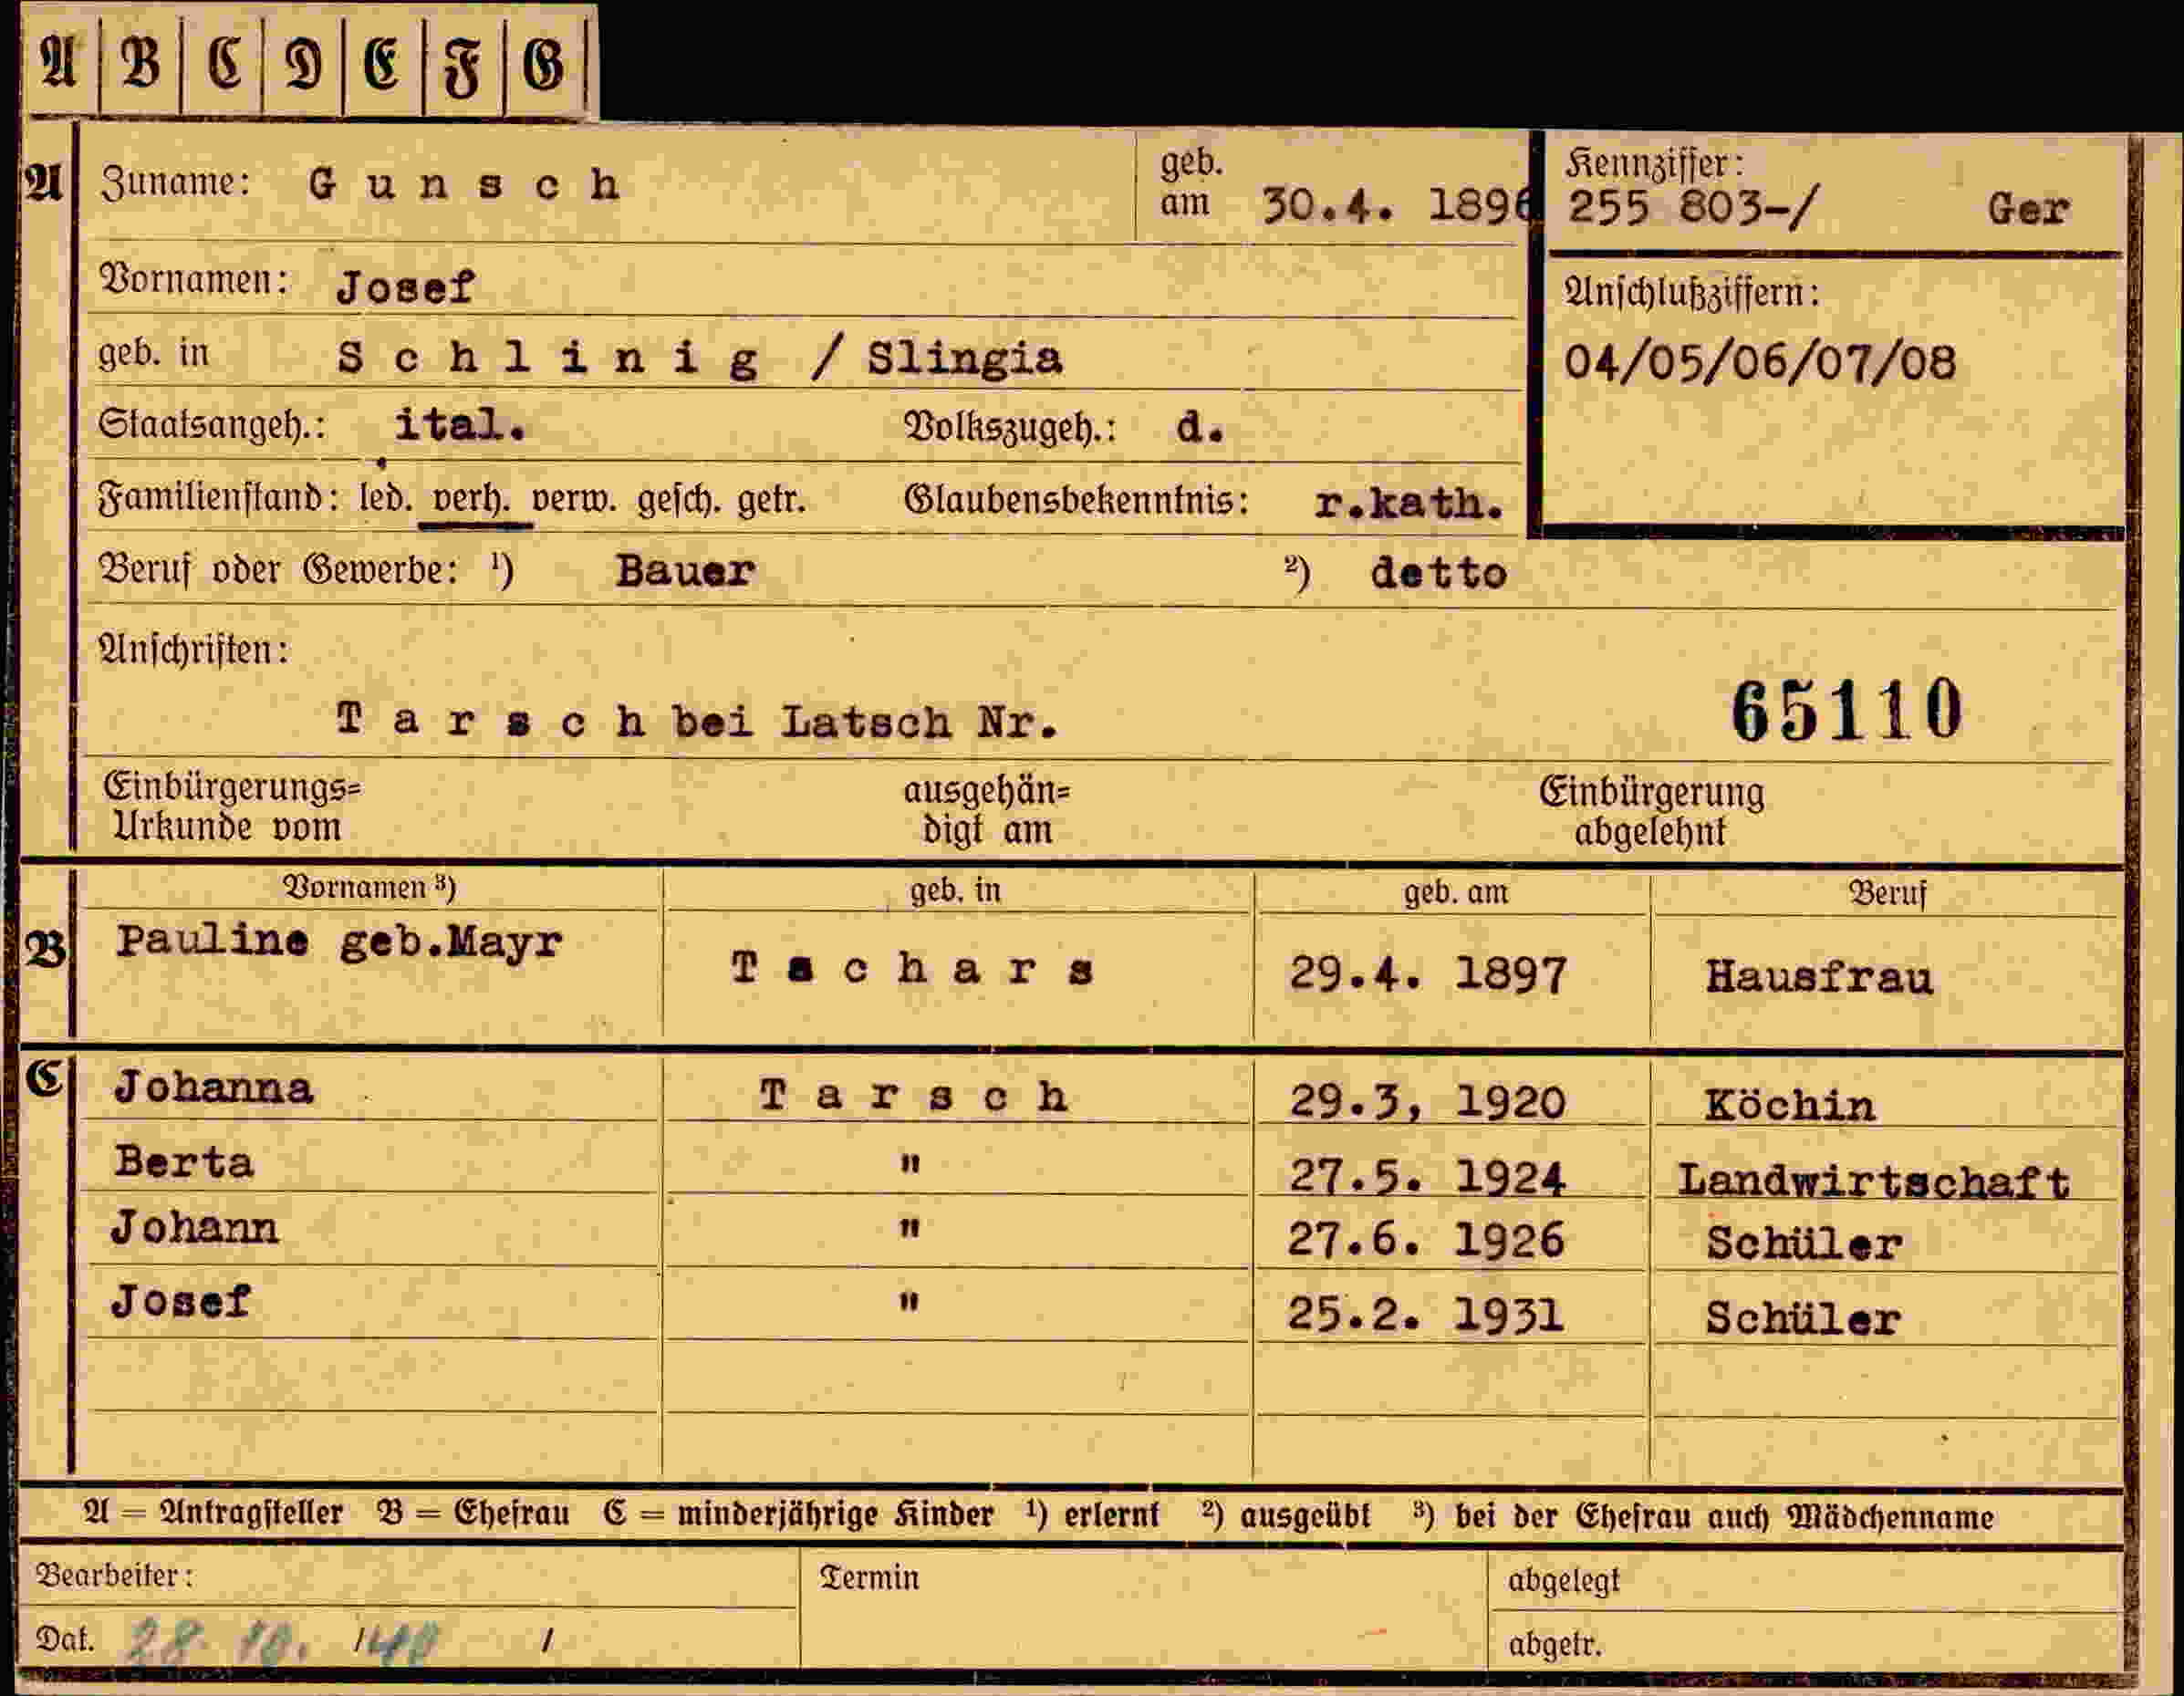 A B C D E F G
A Zuname: Gunsch geb. am 30.4. 1896 Kennziffer: 255 803-/ Ger
Vornamen: Josef Anschlußziffern:
geb. in Schlinig / Slingia 04/05/06/07/08
Staatsangeh.: ital. Volkszugeh.: d.
Familienstand: led. verh. verw. gesch. getr. Glaubensbekenntnis: r.kath.
Beruf oder Gewerbe: ¹) Bauer ²) detto
Anschriften:
Tarsch bei Latsch Nr. 65110
Einbürgerungs= ausgehän= Einbürgerung
Urkunde vom digt am abgelehnt
Vornamen ³) geb. in geb. am Beruf
B Pauline geb.Mayr Tschars 29.4. 1897 Hausfrau
C Johanna Tarsch 29.3, 1920 Köchin
Berta " 27.5. 1924 Landwirtschaft
Johann " 27.6. 1926 Schüler
Josef " 25.2. 1931 Schüler
A = Antragsteller B = Ehefrau C = minderjährige Kinder ¹) erlernt ²) ausgeübt ³) bei der Ehefrau auch Mädchenname
Bearbeiter: Termin abgelegt
Dat. 28. 10. /40 / abgetr.